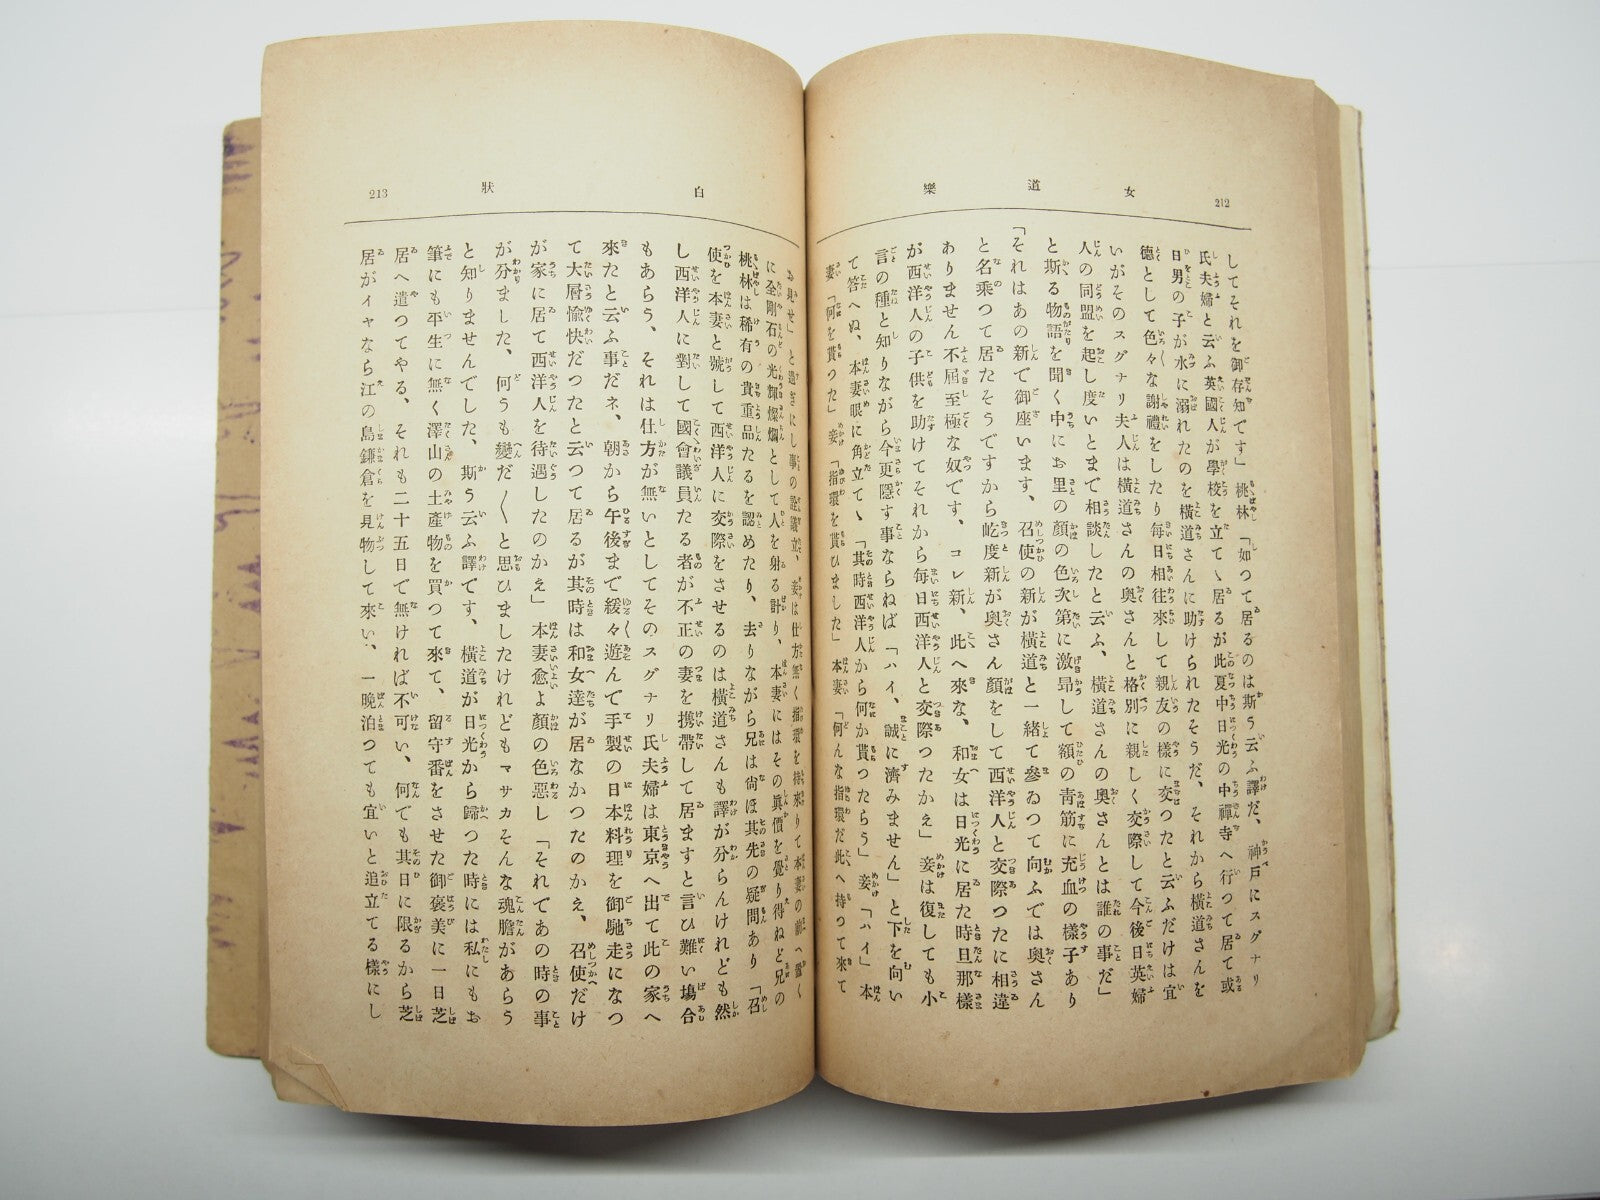 212
女道樂
してそれを御存知です」桃林「如つて居るのは斯う云ふ譯だ、神戸にスグナリ
氏夫婦と云ふ英國人が學校を立てゝ居るが此夏中日光の中禪寺へ行つて居て或
日男の子が水に溺れたのを橫道さんに助けられたそうだ、それから橫道さんを
德として色々な謝禮をしたり每日相往來して親友の樣に交つたと云ふだけは宜
いがそのスグナリ夫人は橫道さんの奧さんと格別に親しく交際して今後日英婦
人の同盟を起し度いとまで相談したと云ふ、橫道さんの奧さんとは誰の事だ」
と斯る物語を聞く中にお里の顏の色次第に激昂して額の靑筋に充血の樣子あり
「それはあの新で御座います、召使の新が橫道と一緒て參ゐつて向ふでは奧さん
と名乘つて居たそうですから屹度新が奧さん顏をして西洋人と交際つたに相違
ありません不屆至極な奴です、コレ新、此へ來な、和女は日光に居た時旦那樣
が西洋人の子供を助けてそれから每日西洋人と交際つたかぇ」妾は復しても小
言の種と知りながら今更隱す事ならねば「ハイ、誠に濟みません」と下を向い
て答へぬ、本妻眼に角立てゝ「其時西洋人から何か貰つたらう」妾「ハイ」本
妻「何を貰つた」妾「指環を貰ひました」本妻「何んな指環だ此へ持つて來て
213
白狀
お見せ」と過ぎにし事の詮議立、妾は仕方無く指環を持來りて本妻の前へ置く
に金剛石の光輝燦爛として人を射る計り、本妻にはその眞價を覺り得ねど兄の
桃林は稀有の貴重品たるを認めたり、去りながら兄は尙ほ其先の疑問あり「召
使を本妻と號して西洋人に交際をさせるのは橫道さんも譯が分らんけれども然
し西洋人に對して國會議員たる者が不正の妻を携帶して居ますと言ひ難い場合
もあらう、それは仕方が無いとしてそのスグナリ氏夫婦は東京へ出て此の家へ
來たと云ふ事だネ、朝から午後まで緩々遊んで手製の日本料理を御馳走になつ
て大層愉快だつたと云つて居るが其時は和女達が居なかつたのかえ、召使だけ
が家に居て西洋人を待遇したのかぇ」本妻愈よ顏の色惡し「それであの時の事
が分ました、何うも變だ〱と思ひましたけれどもマサカそんな魂膽があらう
と知りませんでした、斯う云ふ譯です、橫道が日光から歸つた時には私にもお
筆にも平生に無く澤山の土產物を買つて來て、留守番をさせた御褒美に一日芝
居へ遣つてやる、それも二十五日で無ければ不可い、何でも其日に限るから芝
居がイヤなら江の島鎌倉を見物して來い、一晩泊つても宜いと追立てる樣にし